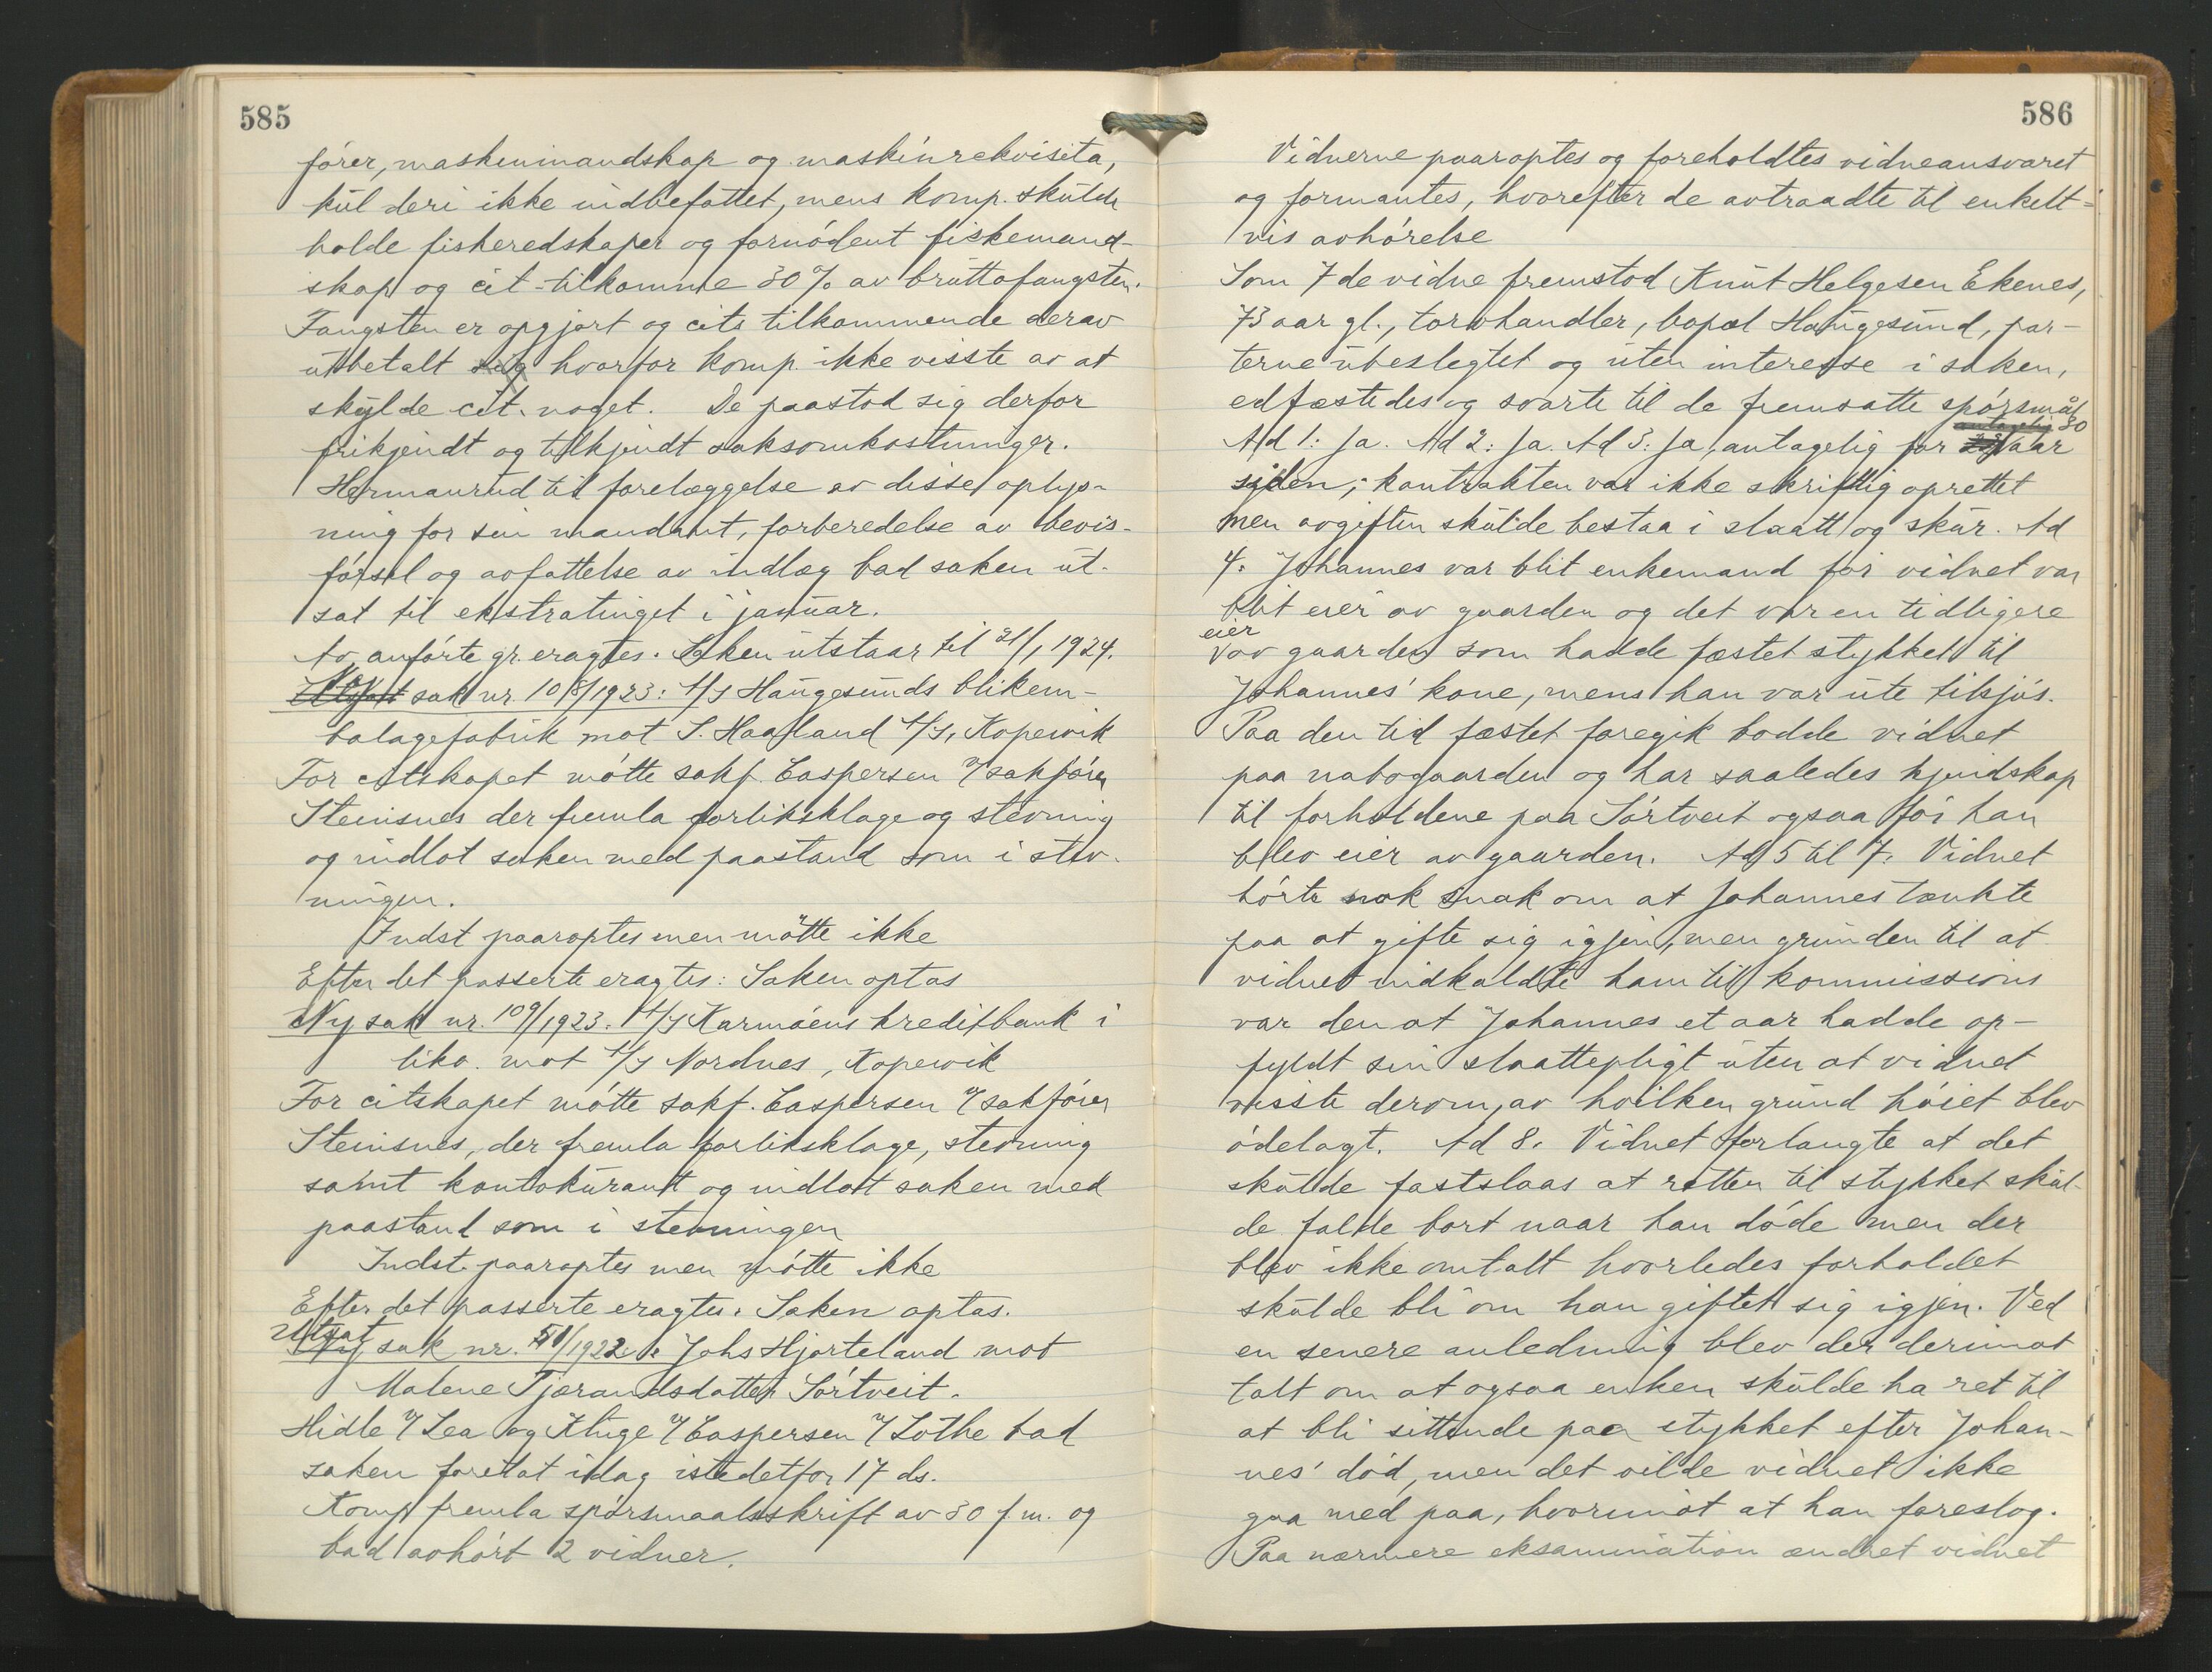 585
fører, maskinmandskap og maskinrekvisita,
kul deri ikke indbefattet, mens komp. skulde
holde fiskeredskaper og fornødent fiskemand-
skap og cit. tilkomme 30% av bruttofangsten.
Fangsten er opgjort og cits tilkommende derav
utbetalt hvorfor komp. ikke visste av at
skylde cit. noget. De paastod sig derfor
frikjendt og tilkjendt saksomkostninger.
Hermanrud til forelæggelse av disse oplys-
ning for sin mandant, forberedelse av bevis-
førsel og avfattelse av indlæg bad saken ut-
sat til ekstratinget i januar.
Av anførte gr. eragtes: Saken utstaar til 21/1 1924.
Ny sak nr. 108/1923: A/S Haugesunds blikem-
balagefabrik mot S. Haaland A/S, Kopervik
For citskapet møtte sakf. Caspersen v/ sakfører
Steinsnes der fremla forliksklage og stevning
og indlot saken med paastand som i stev-
ningen.
Indst. paaroptes men møtte ikke
Efter det passerte eragtes: Saken optas
Ny sak nr. 109/1923. A/S Karmøens kreditbank i
likv. mot A/S Nordnes, Kopervik
For citskapet møtte sakf. Caspersen v/ sakfører
Steinsnes, der fremla forliksklage, stevning
samt kontokurant og indlot saken med
paastand som i stevningen
Indst. paaroptes men møtte ikke
Efter det passerte eragtes: Saken optas.
Utsat sak nr. 51/1922: Johs Hjorteland mot
Malene Tjærandsdatter Sørtveit.
Hidle v/ Lea og Kluge v/ Caspersen v/ Lothe bad
saken foretat idag istedetfor 17 ds.
Komp fremla spørsmaalsskrift av 30 f.m. og
bad avhørt 2 vidner.
586
Vidnerne paaroptes og foreholdtes vidneansvaret
og formantes, hvorefter de avtraadte til enkelt-
vis avhørelse
Som 7de vidne fremstod Knut Helgesen Ekenes,
73 aar gl., torvhandler, bopæl Haugesund, par-
terne ubeslegtet og uten interesse i saken,
edfæstedes og svarte til de fremsatte spørsmål
Ad 1: Ja. Ad 2: Ja. Ad 3: Ja, antagelig for 30 aar
siden; kontrakten var ikke skriftlig oprettet
men avgiften skulde bestaa i slaatt og skur. Ad
4. Johannes var blit enkemand før vidnet var
blit eier av gaarden og det var en tidligere
eier
av gaarden som hadde fæstet stykket til
Johannes' kone, mens han var ute tilsjøs.
Paa den tid fæstet foregik bodde vidnet
paa nabogaarden og har saaledes kjendskap
til forholdene paa Sørtveit ogsaa før han
blev eier av gaarden. Ad 5 til 7. Vidnet
hørte nok snak om at Johannes tænkte
paa at gifte sig igjen, men grunden til at
vidnet indkaldte ham til kommissions
var den at Johannes et aar hadde op-
fyldt sin slaattepligt uten at vidnet
visste derom, av hvilken grund høiet blev
ødelagt. Ad 8. Vidnet forlangte at det
skulde fastslaas at retten til stykket skul-
de falde bort naar han døde men der
blev ikke omtalt hvorledes forholdet
skulde bli om han giftet sig igjen. Ved
en senere anledning blev der derimot
talt om at ogsaa enken skulde ha ret til
at bli sittende paa stykket efter Johan-
nes' død, men det vilde vidnet ikke
gaa med paa, hvorimot at han foreslog.
Paa nærmere eksamination ændret vidnet